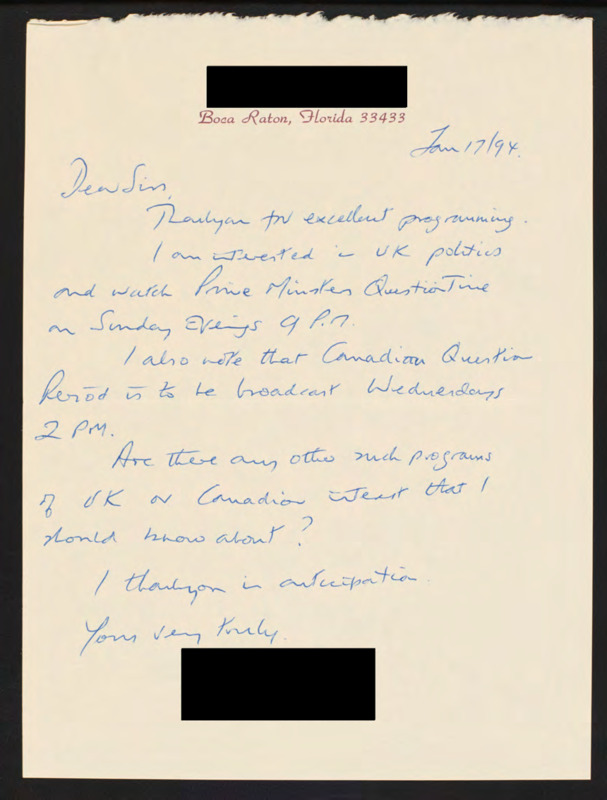 Boca Raton, Florida 33433
Jan 17/94.
Dear Sirs,
Thankyou for excellent programming.
I am interested in UK politics
and watch Prime Ministers Question Time
on Sunday Evenings 9 P.M.
I also note that Canadian Question
Period is to be broadcast Wednesdays
2 P.M.
Are there any other such programs
of UK or Canadian interest that I
should know about?
I thankyou in anticipation.
Yours very truly.